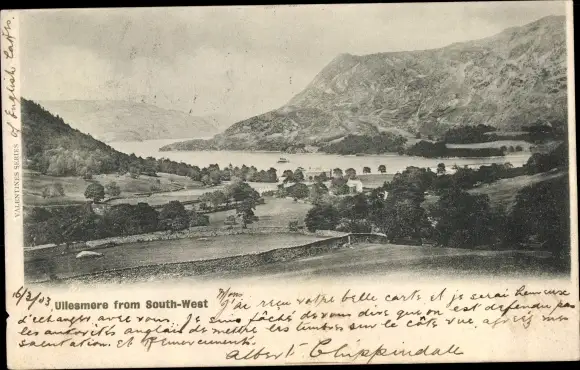 of English Lakes.
VALENTINES SERIES
16/3/03
Ullesmere from South-West
Mon.
J'ai reçu votre belle carte et je serai heureuse
d'echanger avec vous. Je suis fâché de vous dire que on est defendu par
les autorités anglais de mettre les timbres sur le côte vue, agréez mes
salutation. et Remerciments.
Albert E Chippindale